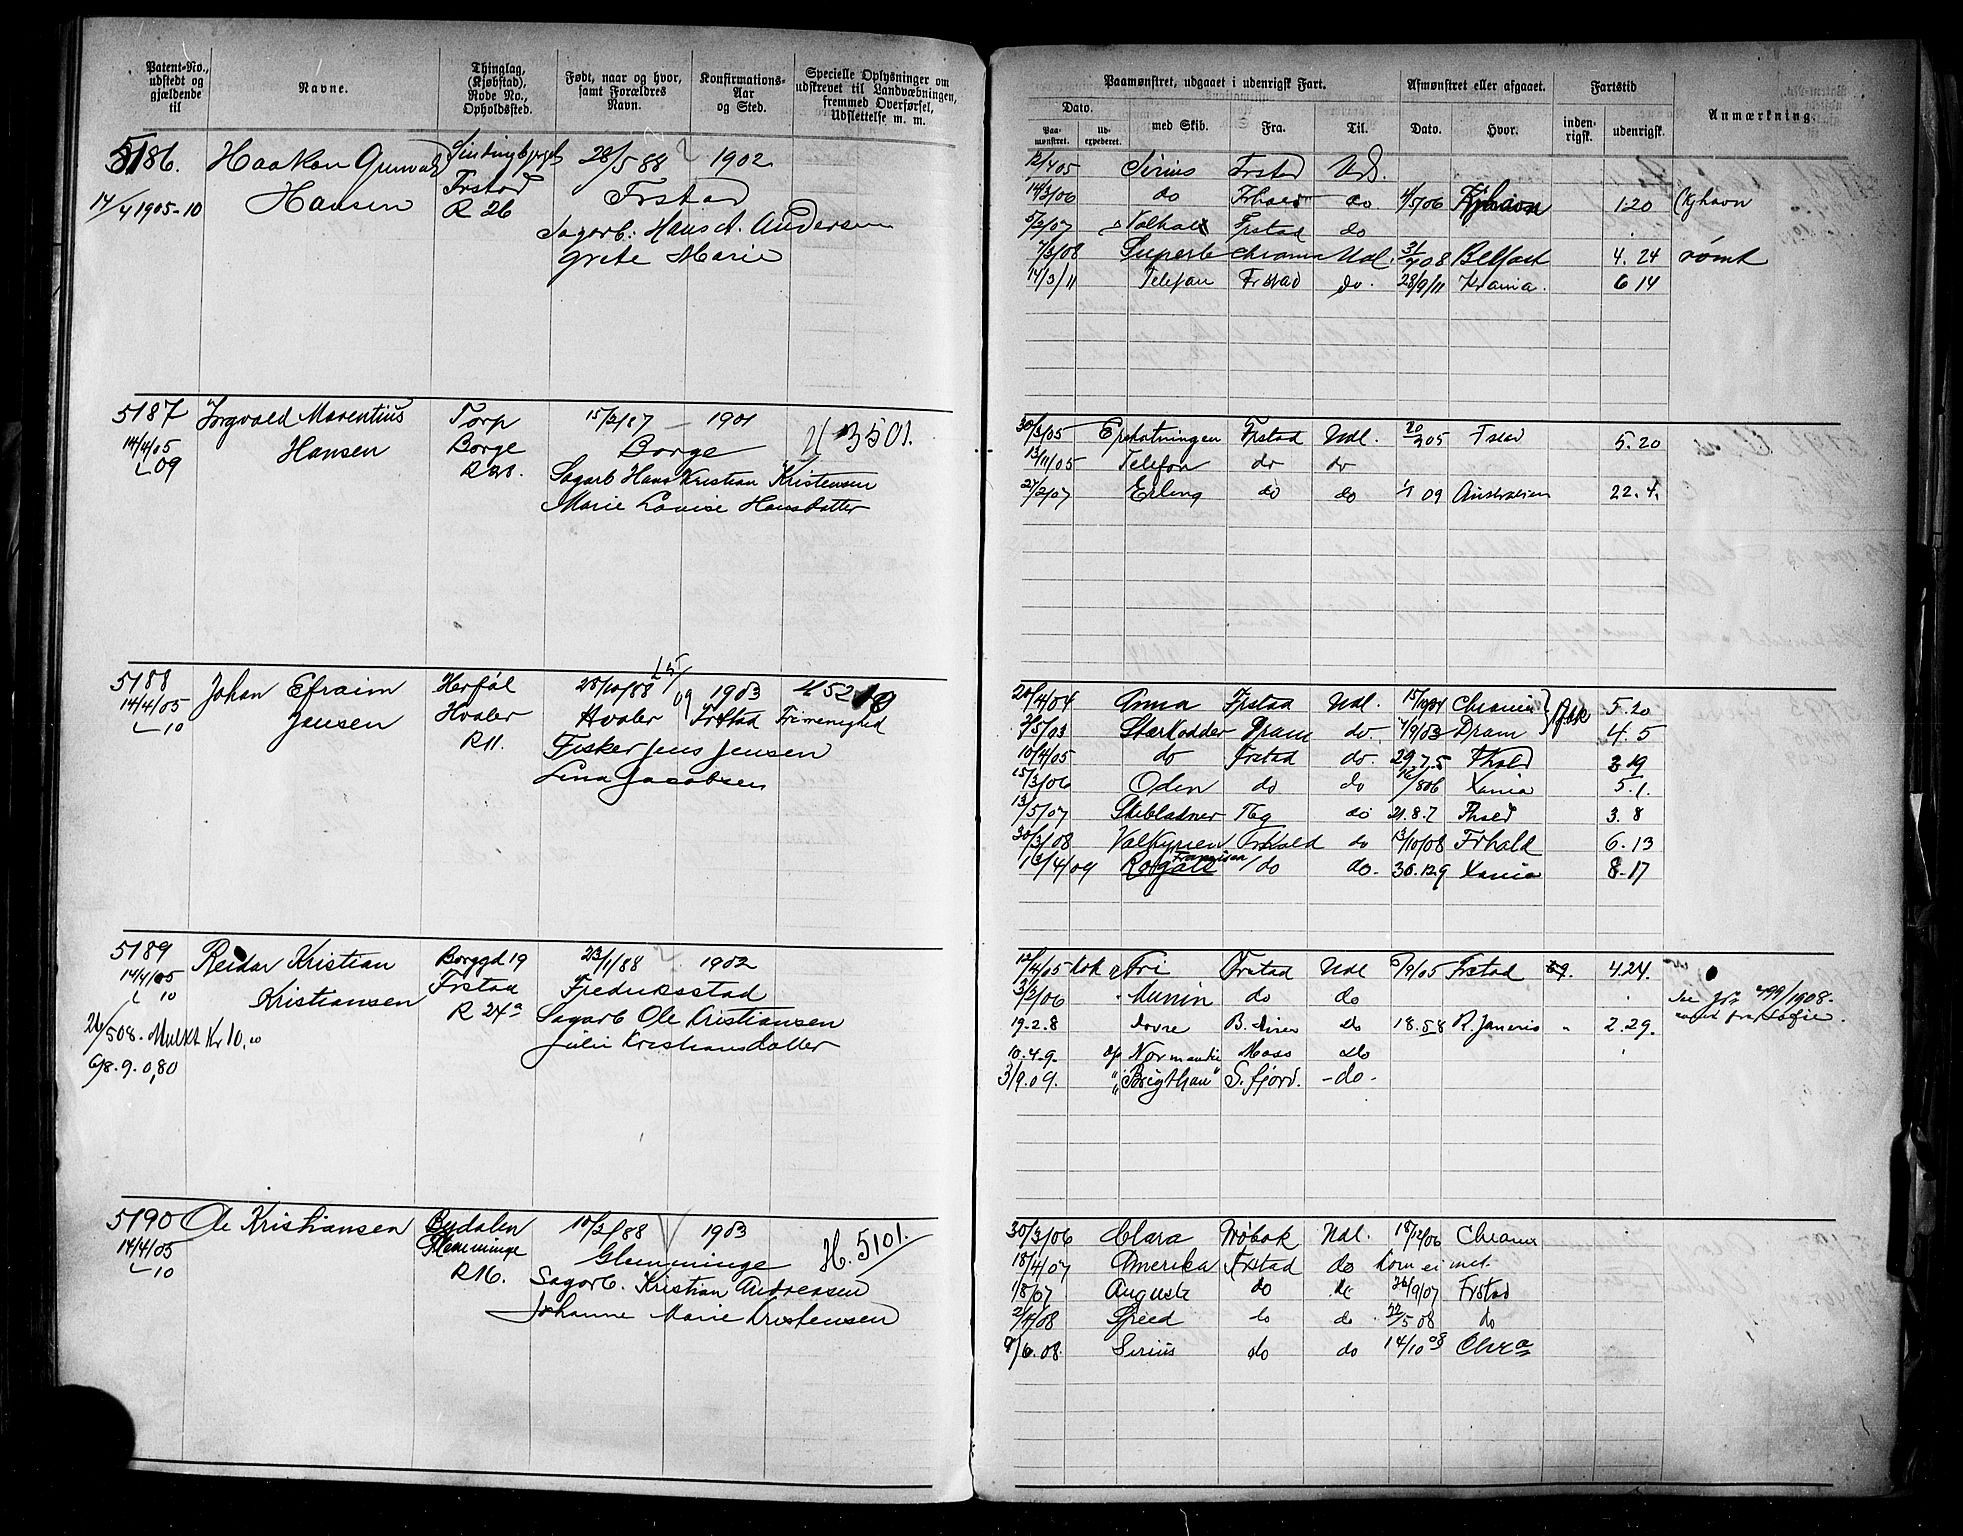 Patent-No., udstedt og gjældende til
Navne.
Thinglag, (Kjøbstad), Rode No., Opholdssted.
Født, naar og hvor, samt Forældres Navn.
Konfirmations-Aar og Sted.
Specielle Oplysninger om udskrevet til Landvæbningen, fremmed Overførsel, Udslettelse m. m.
5186. Haakon Hansen
14/4 1905-10
Frstad
R 26
28/5 88 1902
Frstad
Sagarb: Hans A. Andersen
Grete Marie
5187 Torgvald Marentius Hansen
14/4/05
09
Torp
Borge
15/2/87 1901
Borge
H 3501.
Sagarb Hans Kristian Kristensen
Marie Lovise Hansdatter
5188 Johan Efraim Jensen
14/4/05
10
Herføl
Hvaler
R 11.
28/10/88 1903
Hvaler Frstad Frimenighed
Fisker Jens Jensen
Lina Jacobsen
5189 Reidar Kristian Kristiansen
14/4/05
10
Borggd 19
Frstad
R 24a
23/1/88 1902
Fredriksstad
Sagarb Ole Kristiansen
Julie Kristiansdatter
26/508. Mulkt Kr 10.00
6/8.9. 0,80
5190 Ole Kristiansen
14/4/05
10
Glemminge
R 16.
10/2/88 1903
Glemminge
H. 5101.
Sagarb. Kristian Andreasen
Johanne Marie Kristensen
Paamønstret, udgaaet i udenrigsk Fart.
Afmønstret eller afgaaet.
Fartstid
Anmærkning.
Dato.
Paamønstret.
Udexpederet.
med Skib.
Fra.
Til.
Dato.
Hvor.
indenrigsk.
udenrigsk.
12/4 05 Sirius Frstad Udl.
14/3/06 do Frhald do 4/706 1.20 Kjhavn
5/2/07 Valhal Frstad do
7/3/08 Superb Chrania Udl. 08 Belfast 4. 24 rømt
14/3/11 Telefon Frstad do. 28/9/11 Krania. 6 14
30/3/05 Frstad Udl. 05 5.20
13/11/05 Telefon do do
27/2/07 Erling do do 09 Australien 22. 4.
20/4/04 Anna Frstad Udl. Chrania 5.20
Stærkodder Dram do 7/9/03 Dram 4. 5
10/4/05 do Frstad do. 29.7.5 Fhald 3 19
15/3/06 Oden do do Xania 5.1.
13/5/07 Skibladner do 21.8.7 3. 8
30/3/08 Valkyrien Frhald do 13/10/08 Frhald 6.13
13/4/09 Rolgate Fransisca do do. 30.12.9 Xania 8.17
12/4/05 kok Fri Frstad Udl 6/9/05 Frstad 4.24.
3/2/06 Munin do do
Se 499/1908.
19.2.8 Dovre B. Aires do 18.5 8 R. Janeiro 2.29.
10.4.9. Normandie Moss do
3/9.09. "Brigthan" S.fjord. -do-
30/3/06 Clara Udl. 18/12/06 Chrania
18/4/07 Amerika Frstad do kom ei med.
Auguste do do 26/9/07 Frstad
Speed do do 22/5 08 do
9/6.08. Sirius do do 14/10 08 Chra